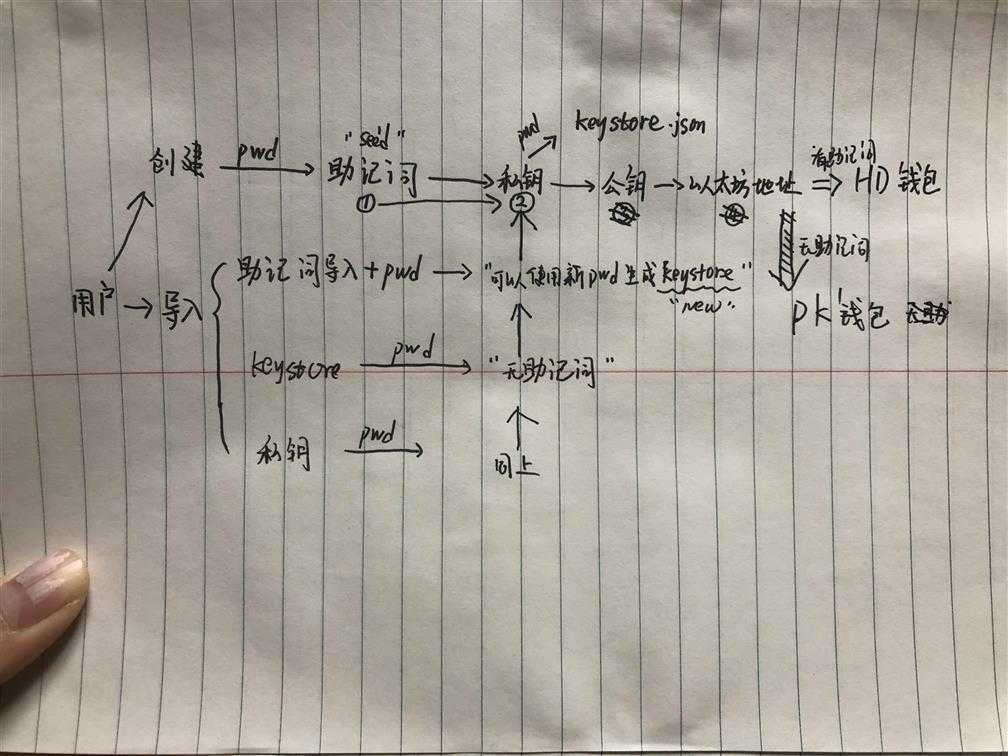 pwd keystore.json
"seed" 有助记词
创建 pwd 助记词 私钥 公钥 以太坊地址 HD 钱包
① ②
无助记词
用户 导入 助记词导入 + pwd "可以使用新pwd生成keystore"
"new"
PK 钱包
keystore pwd "无助记词"
私钥 pwd 同上